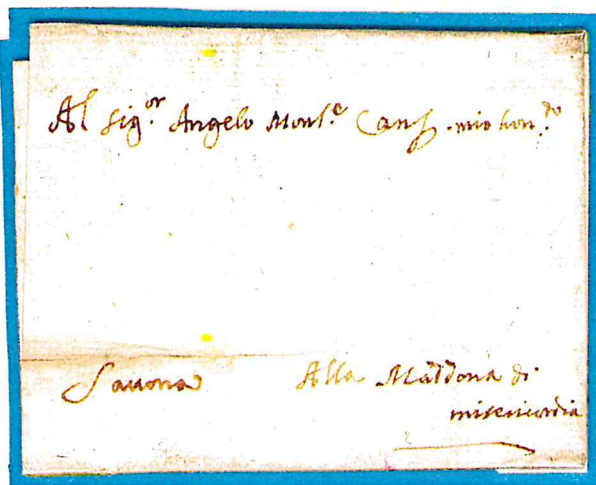 Al Sig.or Angelo Mons.e mio hon.do
Sauona
Alla Maddona di
misericordia